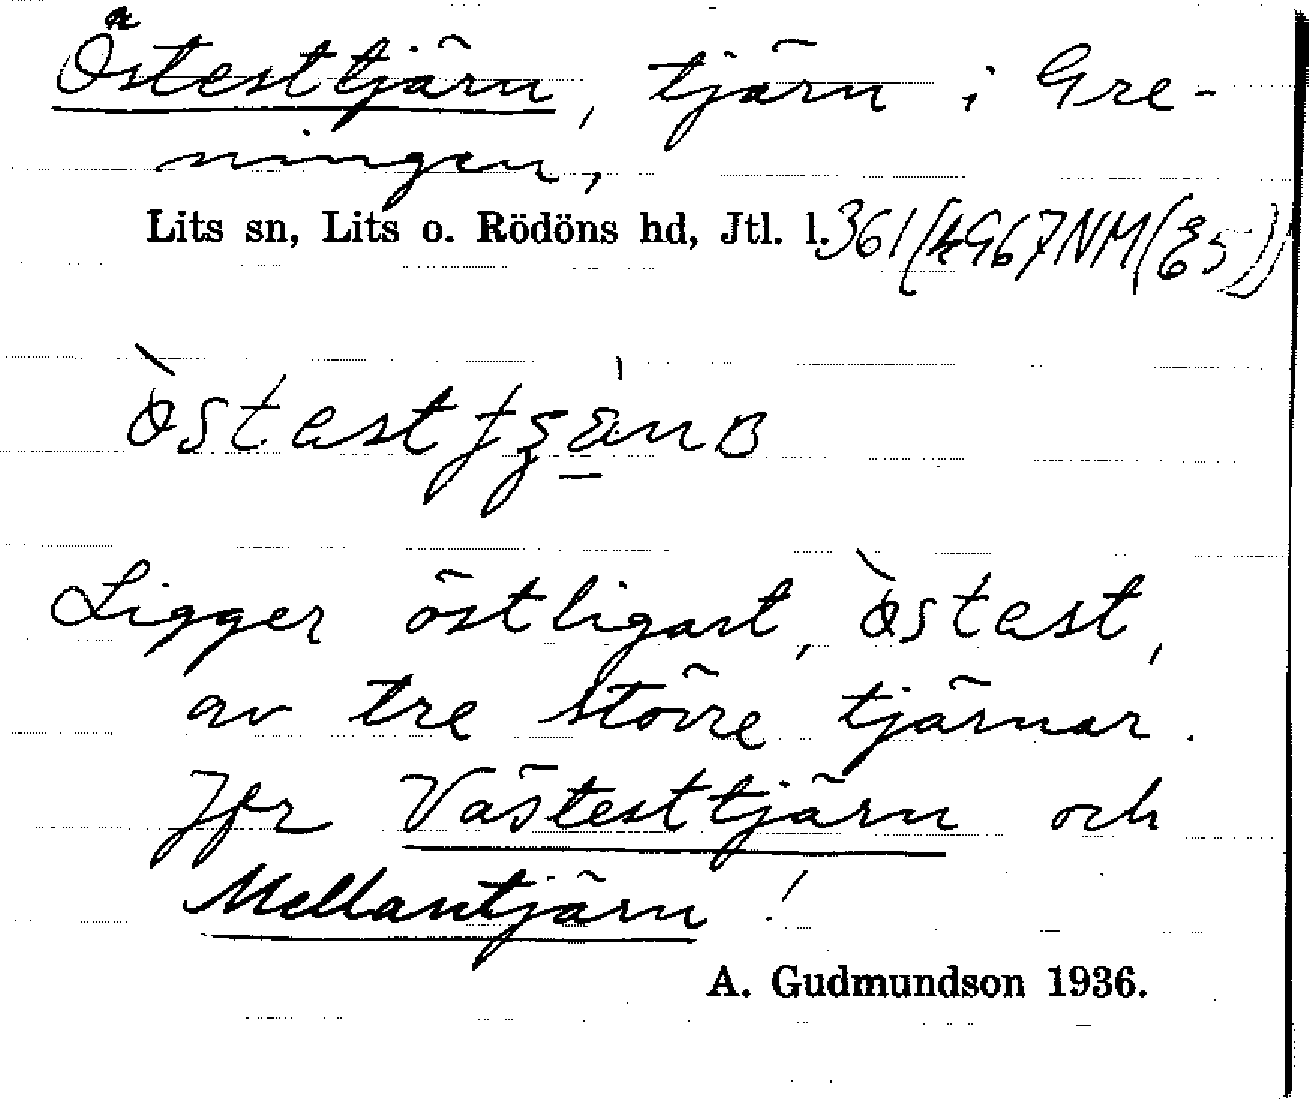 Östesttjärn, tjärn i Gre-
ningen,
Lits sn, Lits o. Rödöns hd, Jtl. l.
Ligger östligast, òstest,
av tre större tjärnar.
Jfr Västesttjärn och
Mellantjärn!
A. Gudmundson 1936.